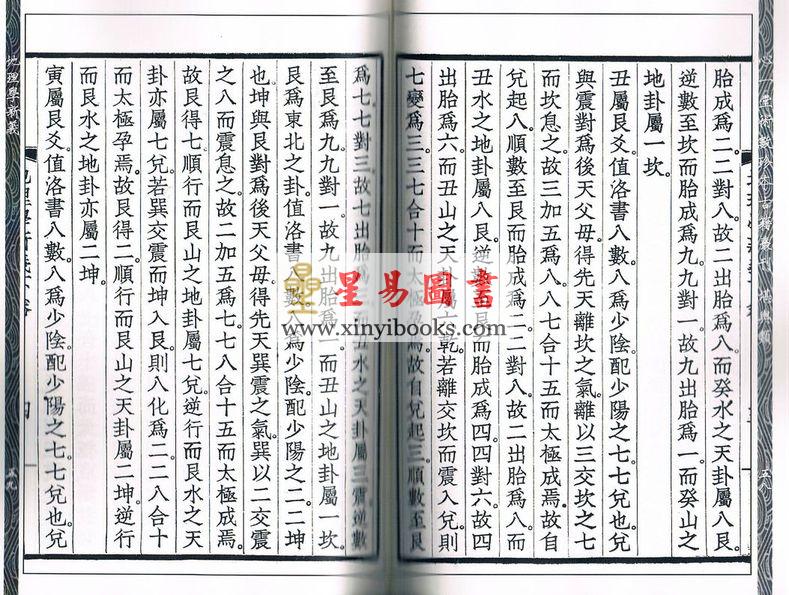 胎成爲二。二對八。故二出胎爲八。而癸水之天卦屬八艮。
逆數至坎而胎成爲九。九對一。故九出胎爲一。而癸山之
地卦屬一坎。
丑屬艮爻。值洛書八數。八爲少陰。配少陽之七。七兌也。兌
與震對。爲後天父母。得先天離坎之氣。離以三交坎之七
而坎息之。故三加五爲八。八七合十五而太極成焉。故自
兌起八。順數至艮而胎成爲二。二對八。故二出胎爲八。而
丑水之地卦屬八艮。逆數至艮而胎成爲四。四對六。故四
出胎爲六。而丑山之天卦屬六乾。若離交坎而震入兌。則
七變爲三。三七合十而太極孕焉。故自兌起三。順數至艮
爲七。七對三。故七出胎爲三。而丑水之天卦屬三震。逆數
至艮爲九。九對一。故九出胎爲一。而丑山之地卦屬一坎。
艮爲東北之卦。值洛書八數。八爲少陰。配少陽之二。二坤
也。坤與艮對。爲後天父母。得先天巽震之氣。巽以二交震
之八而震息之。故二加五爲七。七八合十五而太極成焉。
故艮得七。順行而艮山之地卦屬七兌。逆行而艮水之天
卦亦屬七兌。若巽交震而坤入艮。則八化爲二。二八合十
而太極孕焉。故艮得二。順行而艮山之天卦屬二坤。逆行
而艮水之地卦亦屬二坤。
寅屬艮爻。值洛書八數。八爲少陰。配少陽之七。七兌也。兌
地理學新義
五九
星易圖書
www.xinyibooks.com